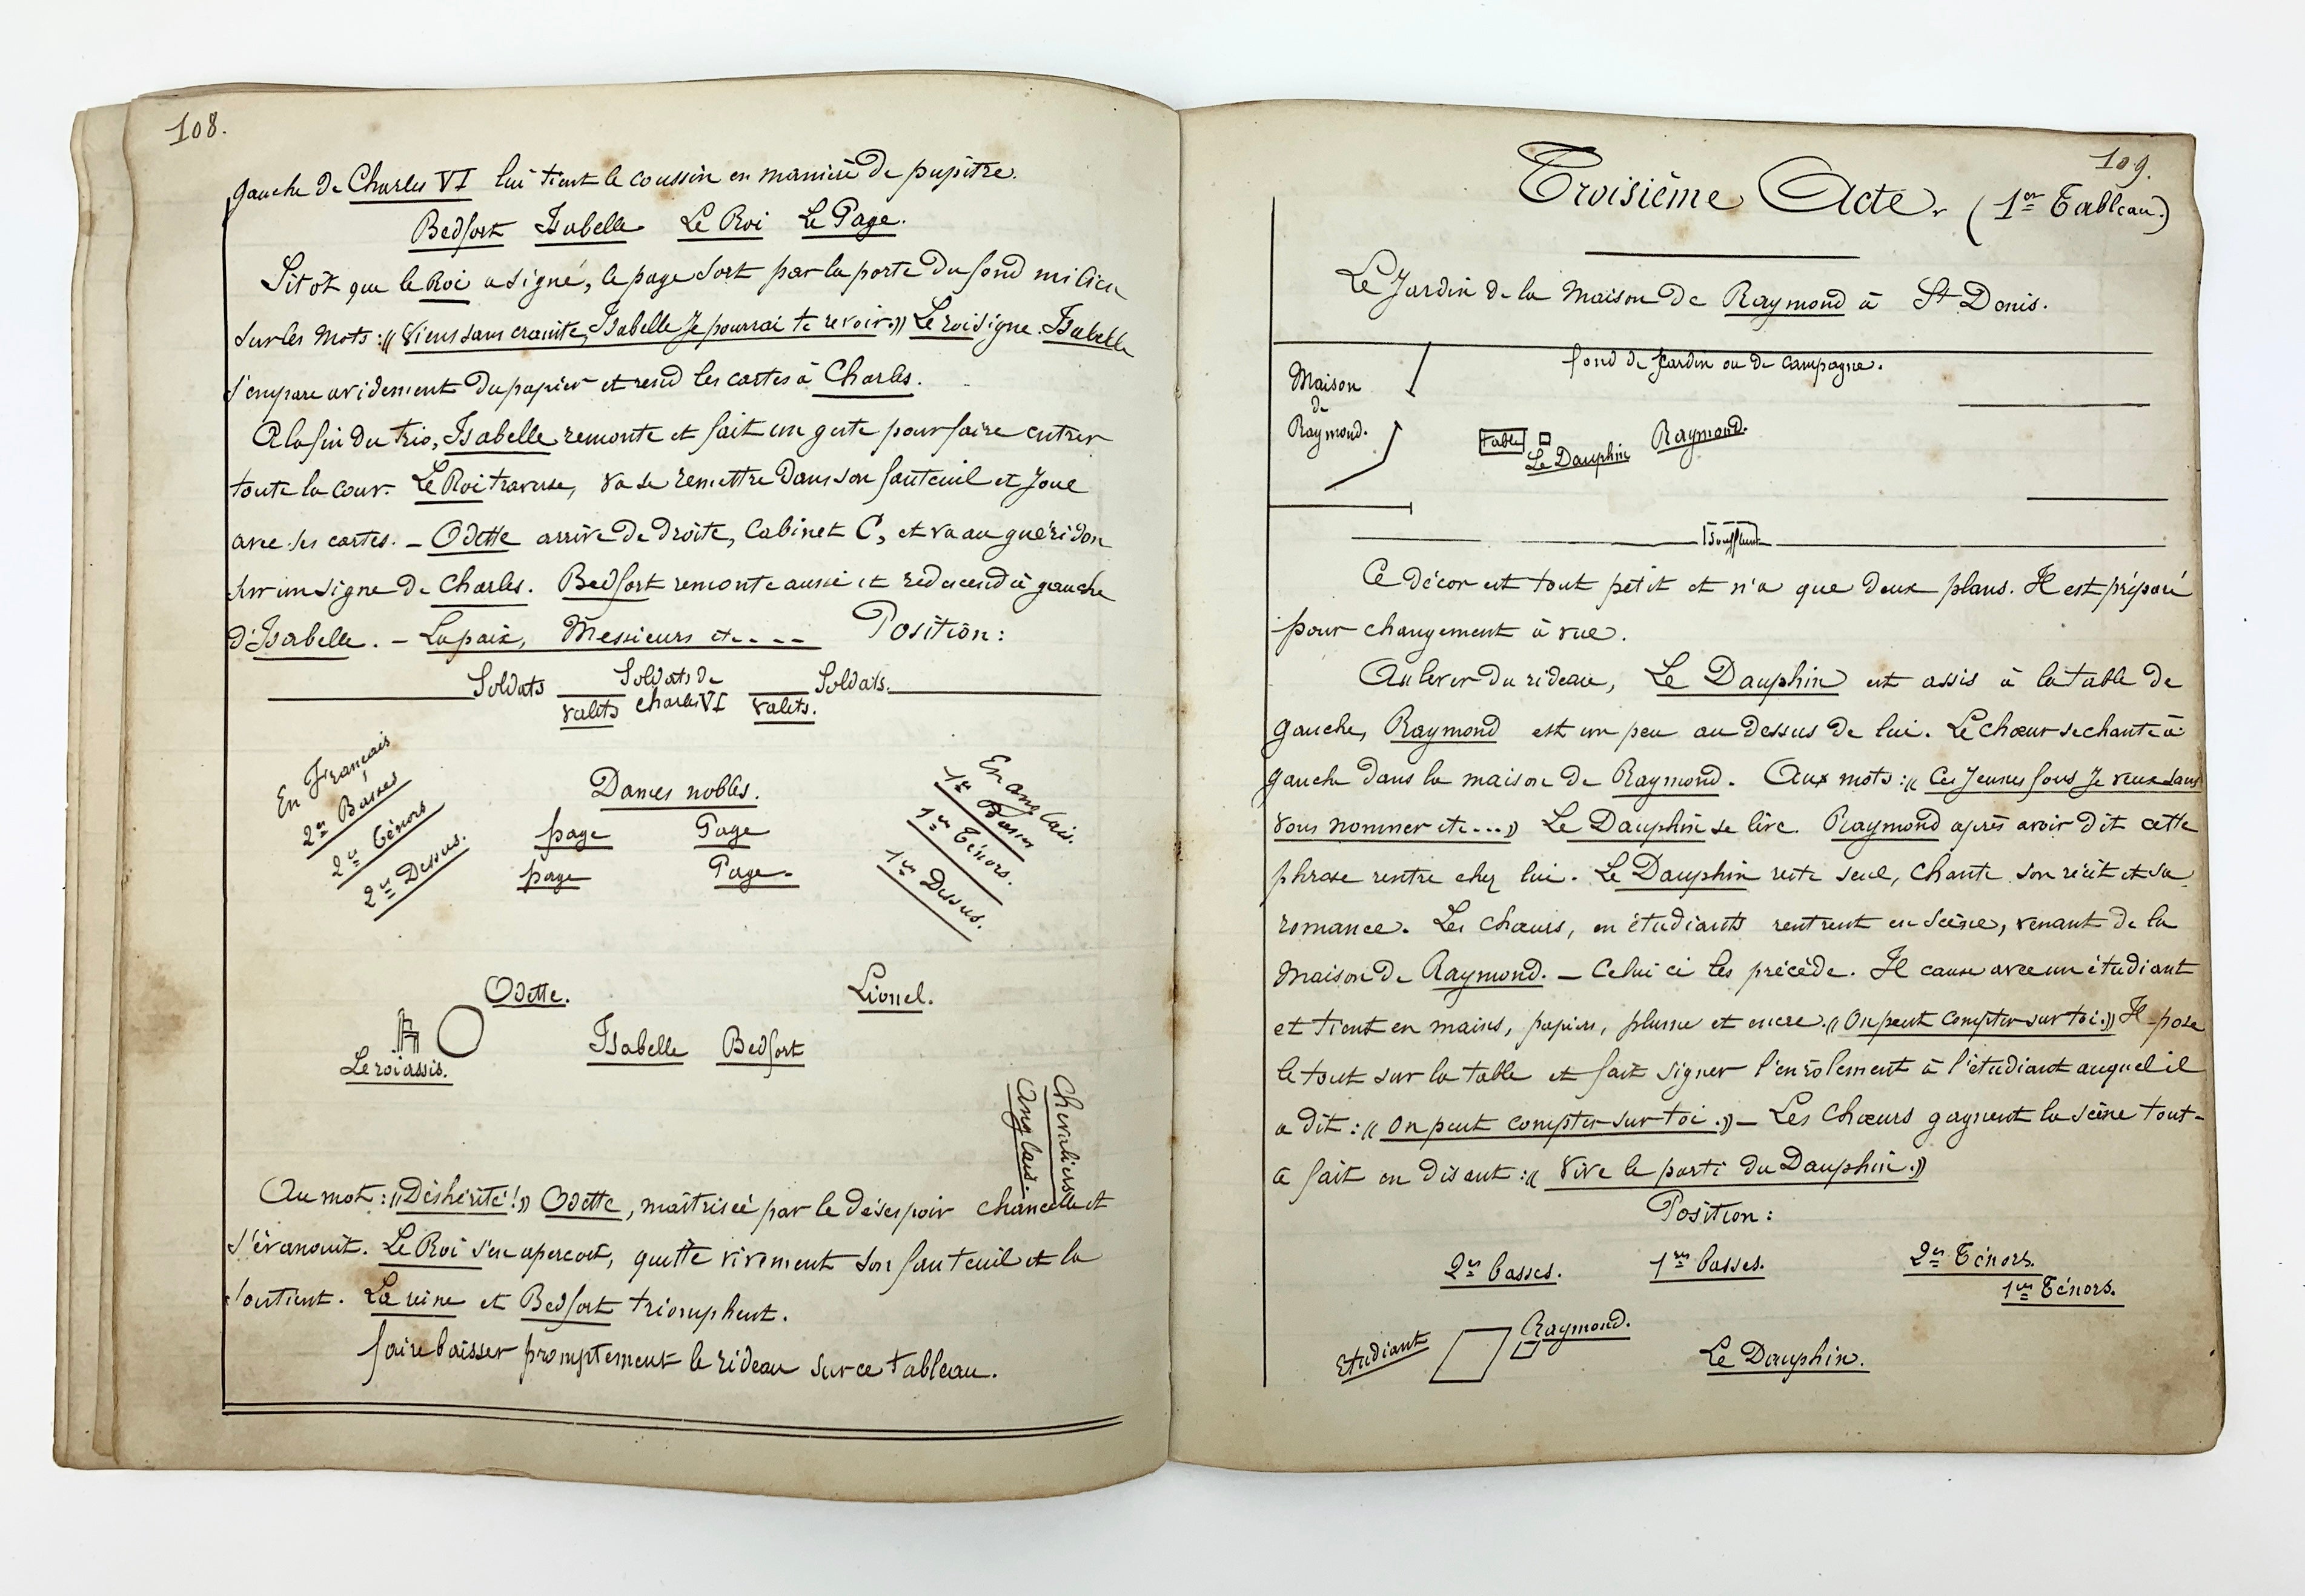 108.
gauche de Charles VI lui tient le coussin en manière de pupitre.
Bedfort Isabelle Le Roi Le Page.
Sitôt que le Roi a signé, le page sort par la porte du fond milieu
sur les mots : « Viens sans crainte, Isabelle Je pourrai te revoir. » Le roi signe. Isabelle
s'empare avidement du papier et rend les cartes à Charles.
A la fin du trio, Isabelle remonte et fait un geste pour faire entrer
toute la cour. Le Roi traverse, va se remettre dans son fauteuil et Joue
avec ses cartes. – Odette arrive de droite, Cabinet C, et va au guéridon
sur un signe de Charles. Bedfort remonte aussi et redescend à gauche
d'Isabelle. – La paix, Messieurs et.... Position :
Soldats Soldats de Soldats.
valets Charles VI valets.
En Français
2es Basses
2es Ténors
2es Dessus.
Dames nobles.
page Page
page Page.
En anglais.
1es Basses
1ers Ténors.
1ers Dessus.
Odette. Lionel.
Le roi assis. Isabelle Bedfort
Chevaliers
Anglais.
Au mot : « Déshérité ! » Odette, maîtrisée par le désespoir chancelle et
s'évanouit. Le Roi s'en apercoit, quitte vivement son fauteuil et la
soutient. La reine et Bedfort triomphent.
faire baisser promptement le rideau sur ce tableau.
109.
Troisième Acte. (1er Tableau.)
Le Jardin de la Maison de Raymond à St Denis.
fond de Jardin ou de Campagne.
Maison
de
Raymond.
table Le Dauphin Raymond.
Souffleur
Ce décor est tout petit et n'a que deux plans. Il est préparé
pour changement à vue.
Au lever du rideau, Le Dauphin est assis à la table de
gauche, Raymond est un peu au dessus de lui. Le Chœur se chante à
gauche dans la maison de Raymond. Aux mots : « Ces Jeunes fous Je veux sans
vous nommer etc... » Le Dauphin se lève. Raymond après avoir dit cette
phrase rentre chez lui. Le Dauphin reste seul, Chante son récit et sa
romance. Les Chœurs, en étudiants rentrent en Scène, venant de la
Maison de Raymond. – Celui ci les précède. Il cause avec un étudiant
et tient en mains, papiers, plume et encre. « On peut compter sur toi. » Il pose
le tout sur la table et fait signer l'enrôlement à l'étudiant auquel il
a dit : « On peut compter sur toi. » – Les Chœurs gagnent la scène tout-
a fait en disant : « Vive le parti du Dauphin. »
Position :
2es basses. 1res basses. 2es Ténors.
1ers Ténors.
Etudiant Raymond.
Le Dauphin.